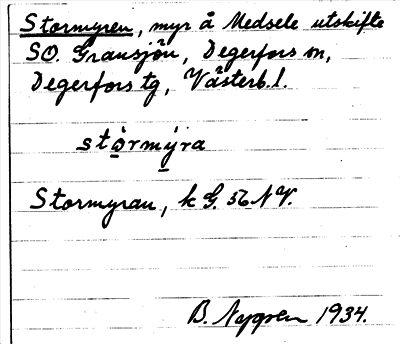 Stormyren, myr å Medsele utskifte
SO. Gransjön, Degerfors sn,
Degerfors tg, Västerb. l.
stòrmýra
Stormyran, k G. 56 NV.
B. Nygren 1934.